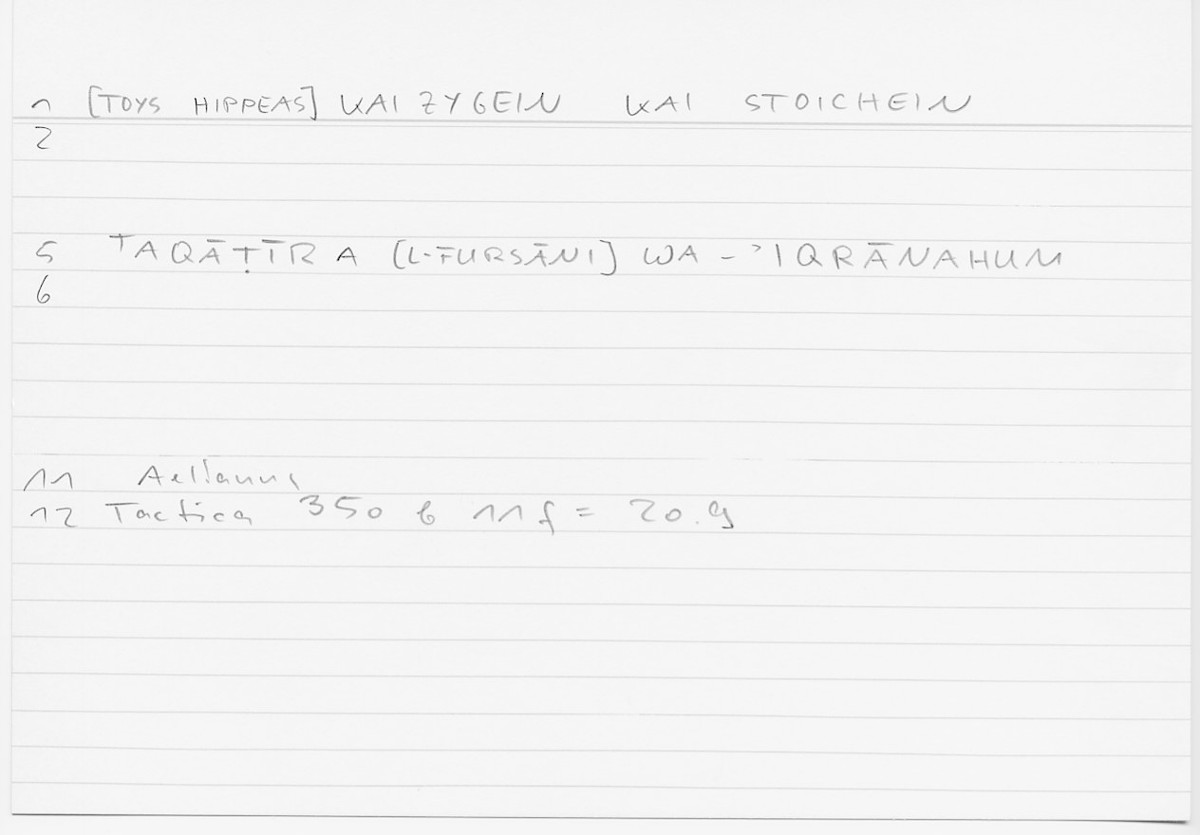 1 [TOYS HIPPEAS] KAI ZYGEIN KAI STOICHEIN
2
5 TAQĀṬĪRA [L-FURSĀNI] WA-ʾIQRĀNAHUM
6
11 Aelianus
12 Tactica 350 b 11 f = 20.9